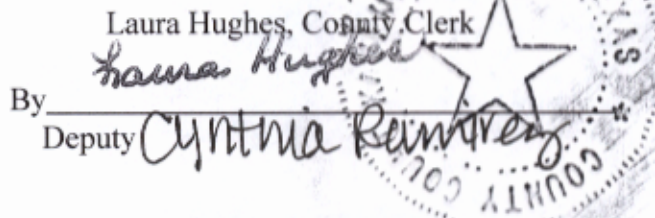 Laura Hughes, County Clerk
Laura Hughes
By
Deputy Cynthia Ramirez
COUNTY COU